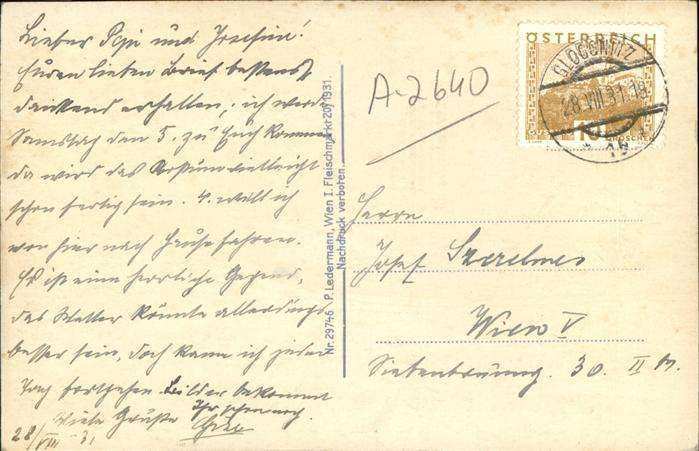 Lieber Pepi und Josefine!
Euren lieben Brief bestens
dankend erhalten, ich werde
Samstag den 5. zu Euch kommen
da wird das vielleicht
schon fertig sein. 4. will ich
von hier nach Hause fahren.
Es ist eine herrliche Gegend,
das Wetter könnte allerdings
besser sein, doch kann ich jeden
Tag fortgehen. Bilder bekommt
Ihr
Viele Grüße
28/VIII 31.
Nr. 29746 P. Ledermann, Wien I. Fleischmarkt 20/1931.
Nachdruck verboten.
A-2640
ÖSTERREICH
GLOGGNITZ
28.VIII.31.18
10
GROSCHEN
Herrn
Josef Szerelmes
Wien V
Siebenbrunng. 30. II